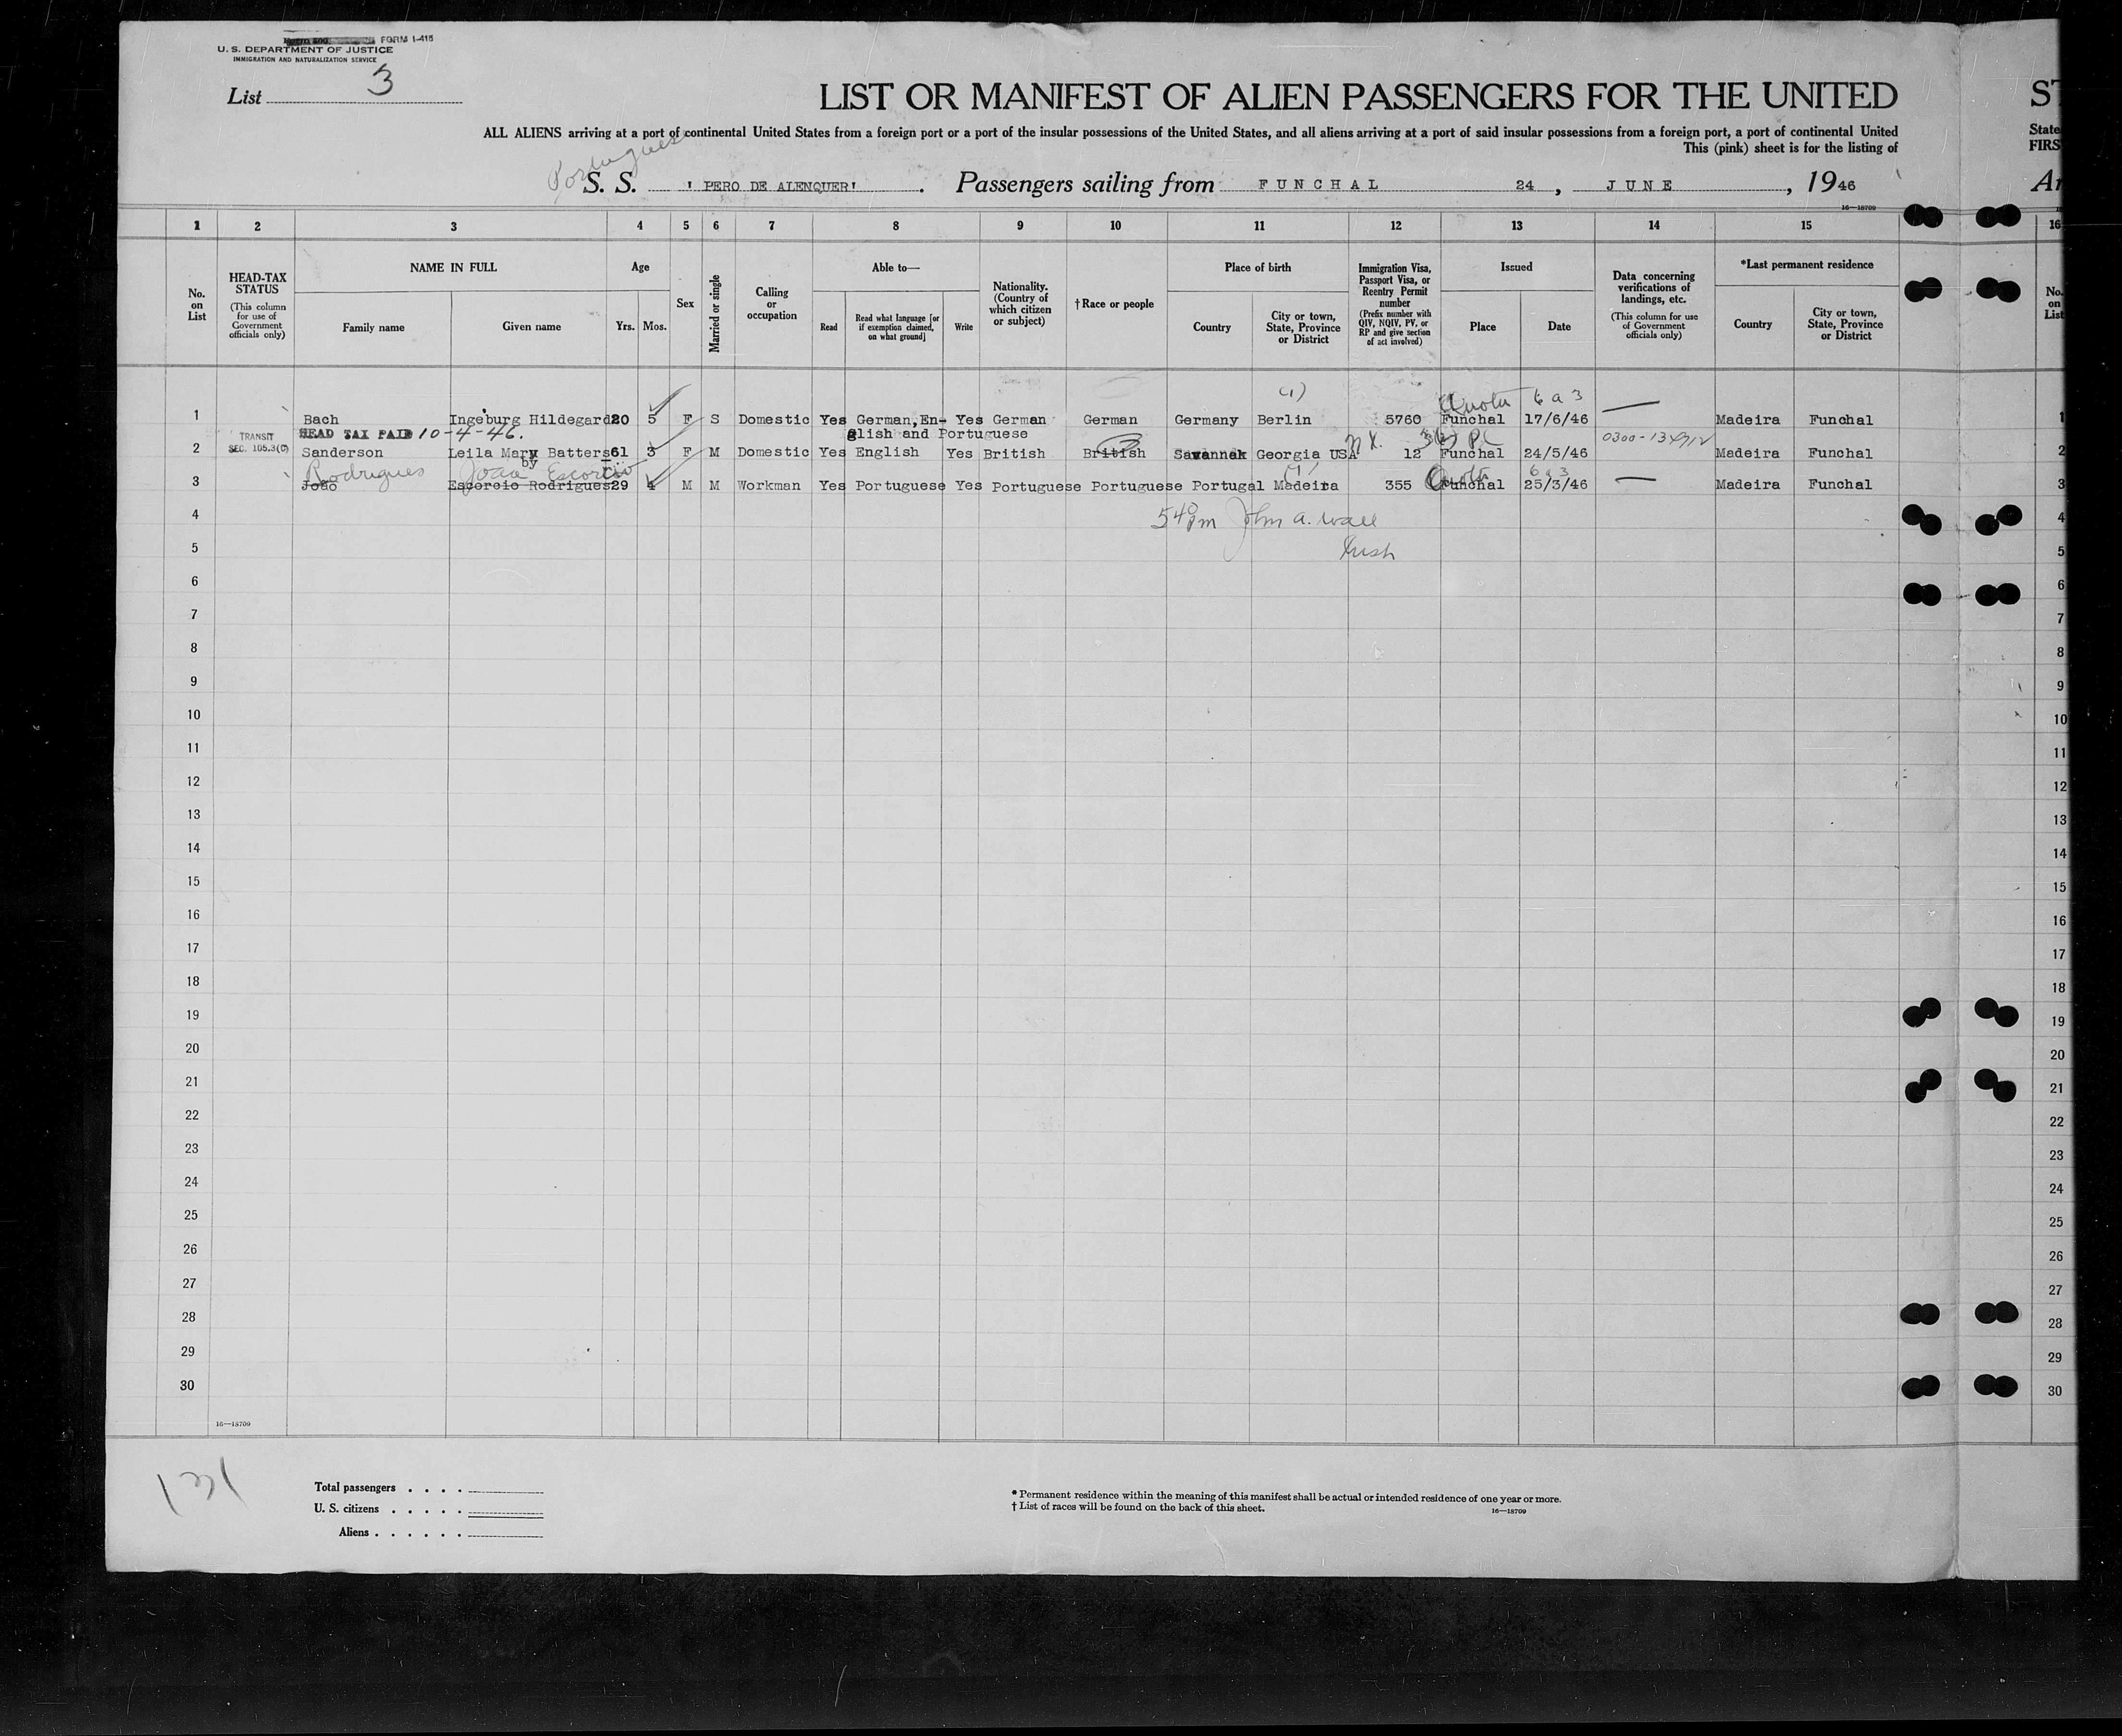 FORM I-415
U. S. DEPARTMENT OF JUSTICE
IMMIGRATION AND NATURALIZATION SERVICE
List 3
LIST OR MANIFEST OF ALIEN PASSENGERS FOR THE UNITED
ST
ALL ALIENS arriving at a port of continental United States from a foreign port or a port of the insular possessions of the United States, and all aliens arriving at a port of said insular possessions from a foreign port, a port of continental United
State
This (pink) sheet is for the listing of
FIRS
Portuguese
S. S. ' PERO DE ALENQUER' . Passengers sailing from FUNCHAL 24 , JUNE , 1946
Ar
16—18709
1 2 3 4 5 6 7 8 9 10 11 12 13 14 15 16
No. on List
HEAD-TAX STATUS (This column for use of Government officials only)
NAME IN FULL
Family name
Given name
Age
Yrs.
Mos.
Sex
Married or single
Calling or occupation
Able to—
Read
Read what language [or if exemption claimed, on what ground]
Write
Nationality. (Country of which citizen or subject)
†Race or people
Place of birth
Country
City or town, State, Province or District
Immigration Visa, Passport Visa, or Reentry Permit number (Prefix number with QIV, NQIV, PV, or RP and give section of act involved)
Issued
Place
Date
Data concerning verifications of landings, etc. (This column for use of Government officials only)
*Last permanent residence
Country
City or town, State, Province or District
No. on List
(1) Quota 6 a 3
1 Bach Ingeburg Hildegard 20 5 F S Domestic Yes German,En- Yes German German Germany Berlin 5760 Funchal 17/6/46 Madeira Funchal 1
HEAD TAX PAID 10-4-46. glish and Portuguese
TRANSIT SEC. 105.3(C)
2 Sanderson Leila Mary Batters 61 3 F M Domestic Yes English Yes British British Savannah Georgia USA 12 Funchal 24/5/46 Madeira Funchal 2
by
Rodrigues Joao Escorcio (1) Quota 6 a 3
3 João Escorcio Rodrigues 29 4 M M Workman Yes Portuguese Yes Portuguese Portuguese Portugal Madeira 355 Funchal 25/3/46 Madeira Funchal 3
4 540 pm John A. Wall 4
5 5
6 6
7 7
8 8
9 9
10 10
11 11
12 12
13 13
14 14
15 15
16 16
17 17
18 18
19 19
20 20
21 21
22 22
23 23
24 24
25 25
26 26
27 27
28 28
29 29
30 30
16—18709
Total passengers . . . .
U. S. citizens . . . . .
Aliens . . . . . .
* Permanent residence within the meaning of this manifest shall be actual or intended residence of one year or more.
† List of races will be found on the back of this sheet.
16—18709